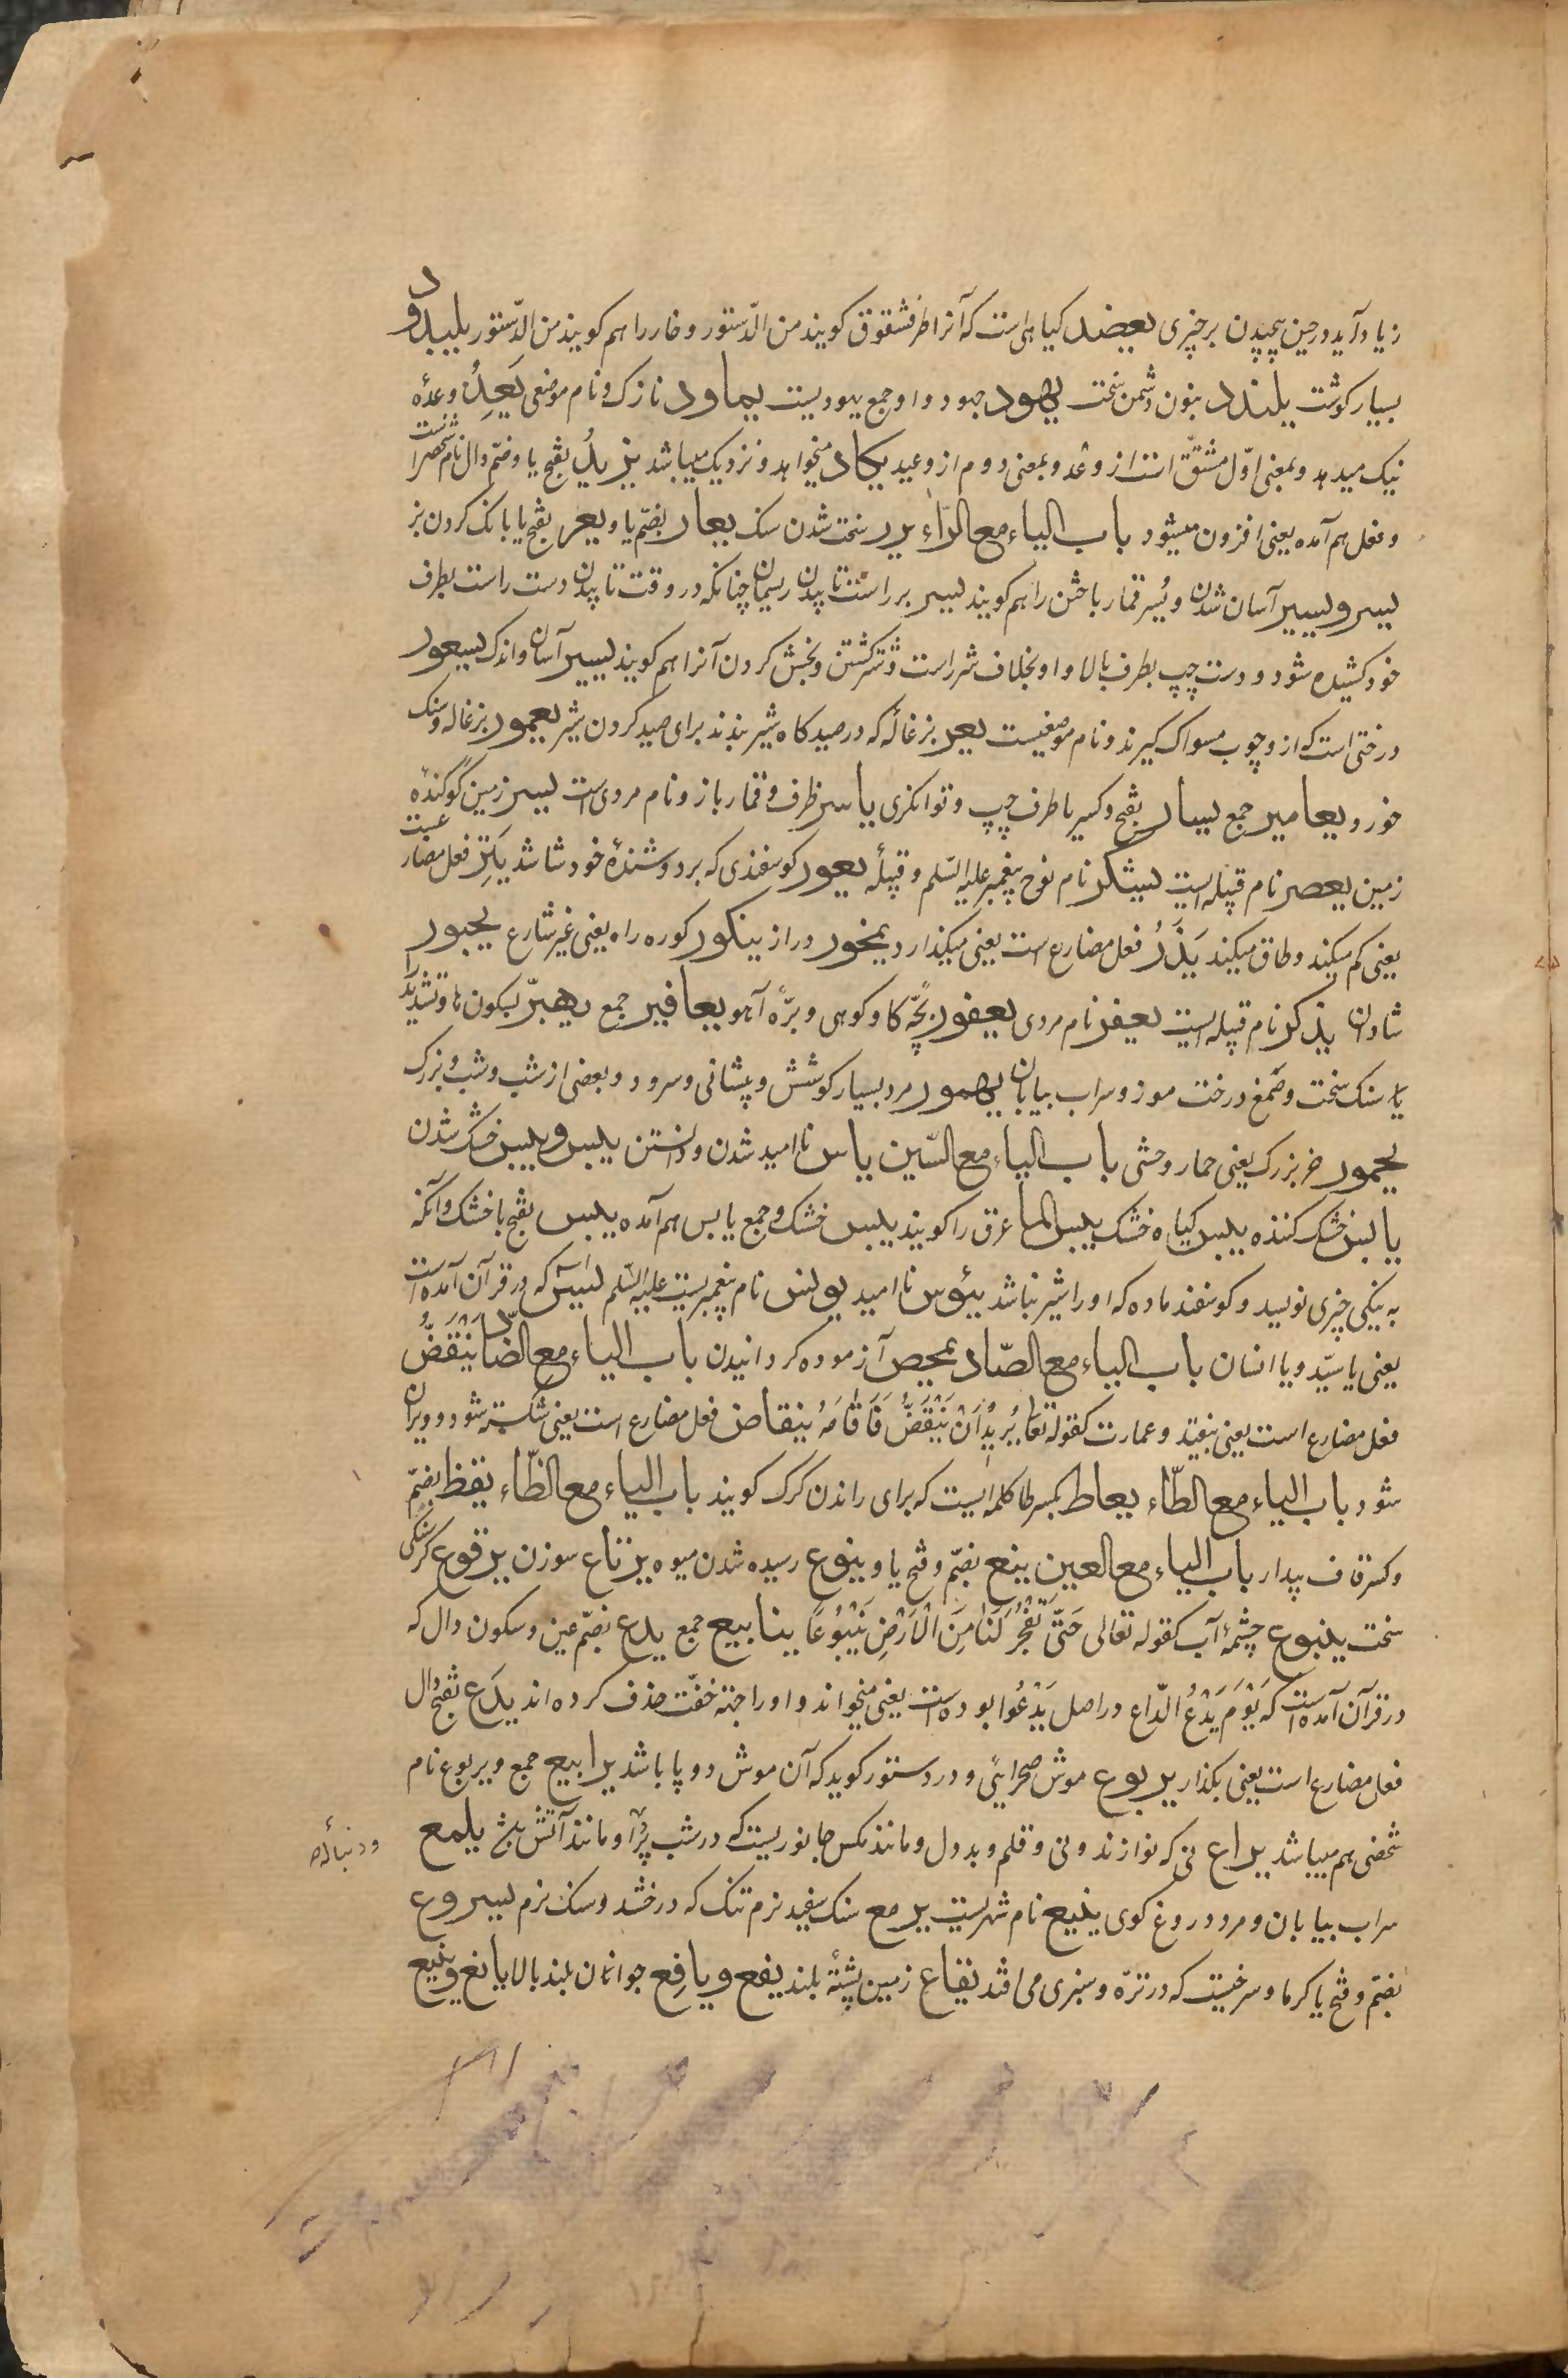 زیاد آید در حین پیچیدن بر چیزی یعضد کیاهی است که آنرا طرفشقوق کویند من الدّستور و خار را هم کویند من الدّستور یلبدد و
بسیار کوشت یلندد بنون دشمن سخت یهود جهود و او جمع یهودیست یماود نازک و نام موضعی یَعِدُ وعدهٔ
نیک میدهد و بمعنی اوّل مشتقّ است از وَعْد و بمعنی دوم از وعید یکاد میخواهد و نزدیک میباشد یزیدُ بفتح یا و ضمّ دال نام شخصیست
و فعل هم آمده یعنی افزون میشود باب الیاء مع الرّاء یرر سخت شدن سنک یعار بضمّ یا و یعر بفتح یا بانک کردن بز
یسر و یسیر آسان شدن و یُسر قمار باختن را هم کویند یسر بر راست تابیدن ریسمان چنانکه در وقت تابیدن دست راست بطرف
خود کشیده شود و دست چپ بطرف بالا و او بخلاف شزر است و شتر کشتن و بخش کردن آنرا هم کویند یسیر آسان و اندک یستعور
درختی است که از و چوب مسواک کیرند و نام موضعیست یعر بزغاله که در صیدکاه شیر بندند برای صید کردن شیر یعمور بزغاله و سنک
خورد یعامیر جمع یسار بفتح و کسر یا طرف چپ و توانکری یاسر ظرف و قمار باز و نام مردی است یسر زمین کو کندهٔ
زمین یعصر نام قبیله ایست یشکر نام نوح پیغمبر علیه السّلم و قبیلهٔ یعور کوسفندی که بر دوشندهٔ خود شاشد یَتِرَ فعل مضارعیست
یعنی کم میکند و طاق میکند یَذَرُ فعل مضارع است یعنی میکذارد یمخور دراز ینکور کوره راه یعنی غیر شارع یحبور
شادان یذکر نام قبیله ایست یعفر نام مردی یعفور بچّهٔ کاو کوهی و برّهٔ آهو یعافیر جمع یهیرّ بسکون ها و تشدید را
یا سنک سخت و صمغ درخت موز و سراب بیابان یهمور مرد بسیار کوشش و پیشانی و سرود و بعضی از شب و شب بزرک
یحمور خر بزرک یعنی حمار وحشی باب الیاء مع السّین یاس ناامید شدن و دانستن یبس و یبیس خشک شدن
یابس خشک کننده یبیس کیاه خشک یبیس الما عرق را کویند یبیس خشک و جمع یابس هم آمده یبس بفتح با خشک و آنکه
به نیکی چیزی نویسد و کوسفند ماده که او را شیر نباشد یئوس ناامید یونس نام پیغمبریست علیه السّلم یسٓ که در قرآن آمده است
یعنی یا سیّد و یا انسان باب الیاء مع الصّاد یمحص آزموده کردانیدن باب الیاء مع الضّاد یَنْقَضُّ
فعل مضارع است یعنی بیفتد و عمارت کقوله تعا یُرِیدُ اَنْ یَنْقَضَّ فَاَقَامَهُ ینقاض فعل مضارع است یعنی شکسته شود و ویران
شود باب الیاء مع الطّاء یعاط بکسر طا کلمه ایست که برای راندن کرک کویند باب الیاء مع الظّاء یقظ بضمّ
و کسر قاف بیدار باب الیاء مع العین ینع بضمّ و فتح یا و ینوع رسیده شدن میوه یرتاع سوزن یرقوع کرسنکی
سخت ینبوع چشمهٔ آب کقوله تعالی حَتّٰی تَفْجُرَ لَنَا مِنَ الْاَرْضِ یَنْبُوعًا ینابیع جمع یدع بضمّ عین و سکون دال که
در قرآن آمده است که یَوْمَ یَدْعُ الدّاعِ در اصل یَدْعُوا بوده است یعنی میخواند و او را جهته خفّت حذف کرده اند یدَع بفتح دال
فعل مضارع است یعنی بکذار یربوع موش صحرایی و در دستور کوید که آن موش دو پا باشد یرابیع جمع و یربوع نام
شخصی هم میباشد یراع نی که نوازند و نی و قلم و بد دل و مانند مکس جانوریست که در شب پرّد و مانند آتش باشد یلمع
ودنباله
سراب بیابان و مرد دروغ کوی ینبع نام شهریست یرمع سنک سفید نرم تنک که درخشد و سنک نرم یسروع
بضمّ و فتح یا کرما و سرخیست که در ترّه و سبزی می افتد یفاع زمین پشتهٔ بلند یفع و یافع جوانان بلند بالا یانع و ینیع